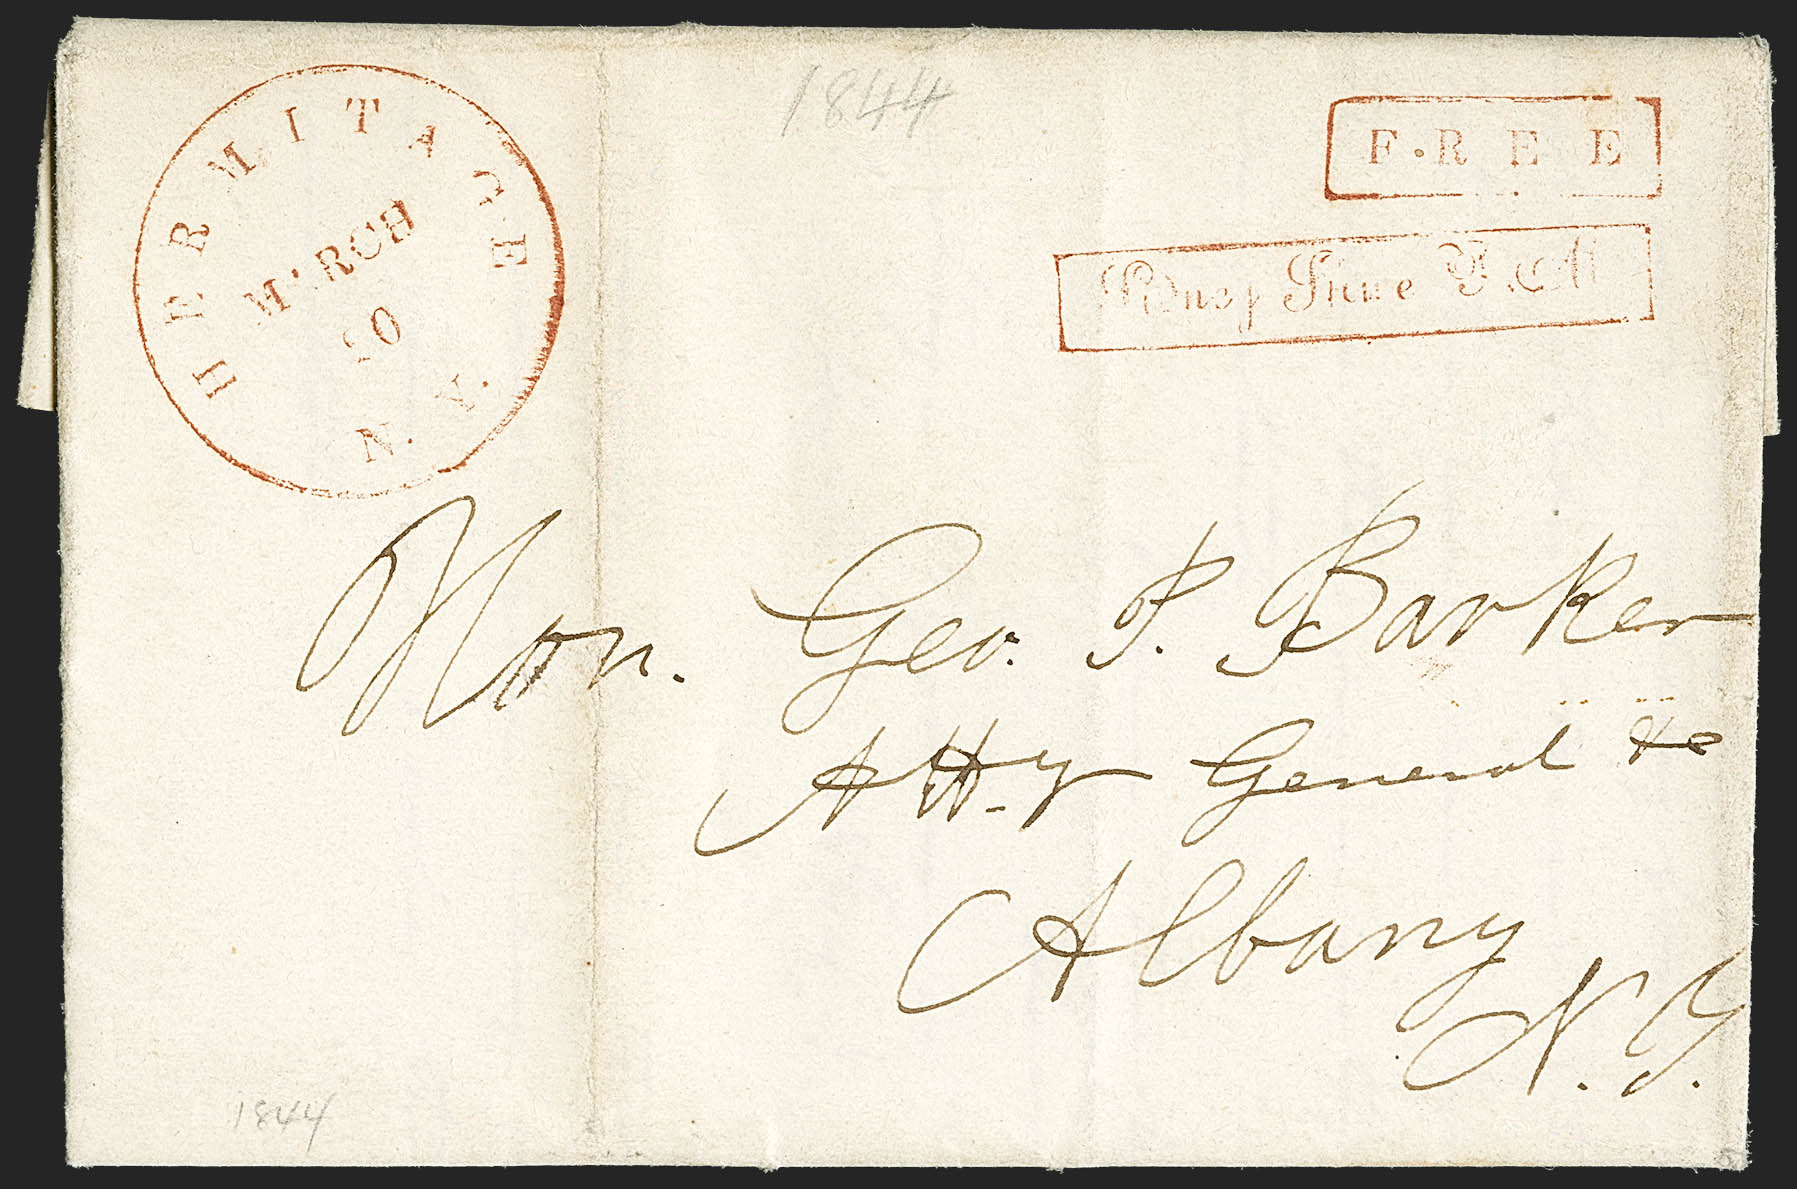 HERMITAGE
MARCH
20
N.Y.
1844
FREE
P.M.
Hon. Geo. P. Barker
Atty General &c
Albany
N.Y.
1844